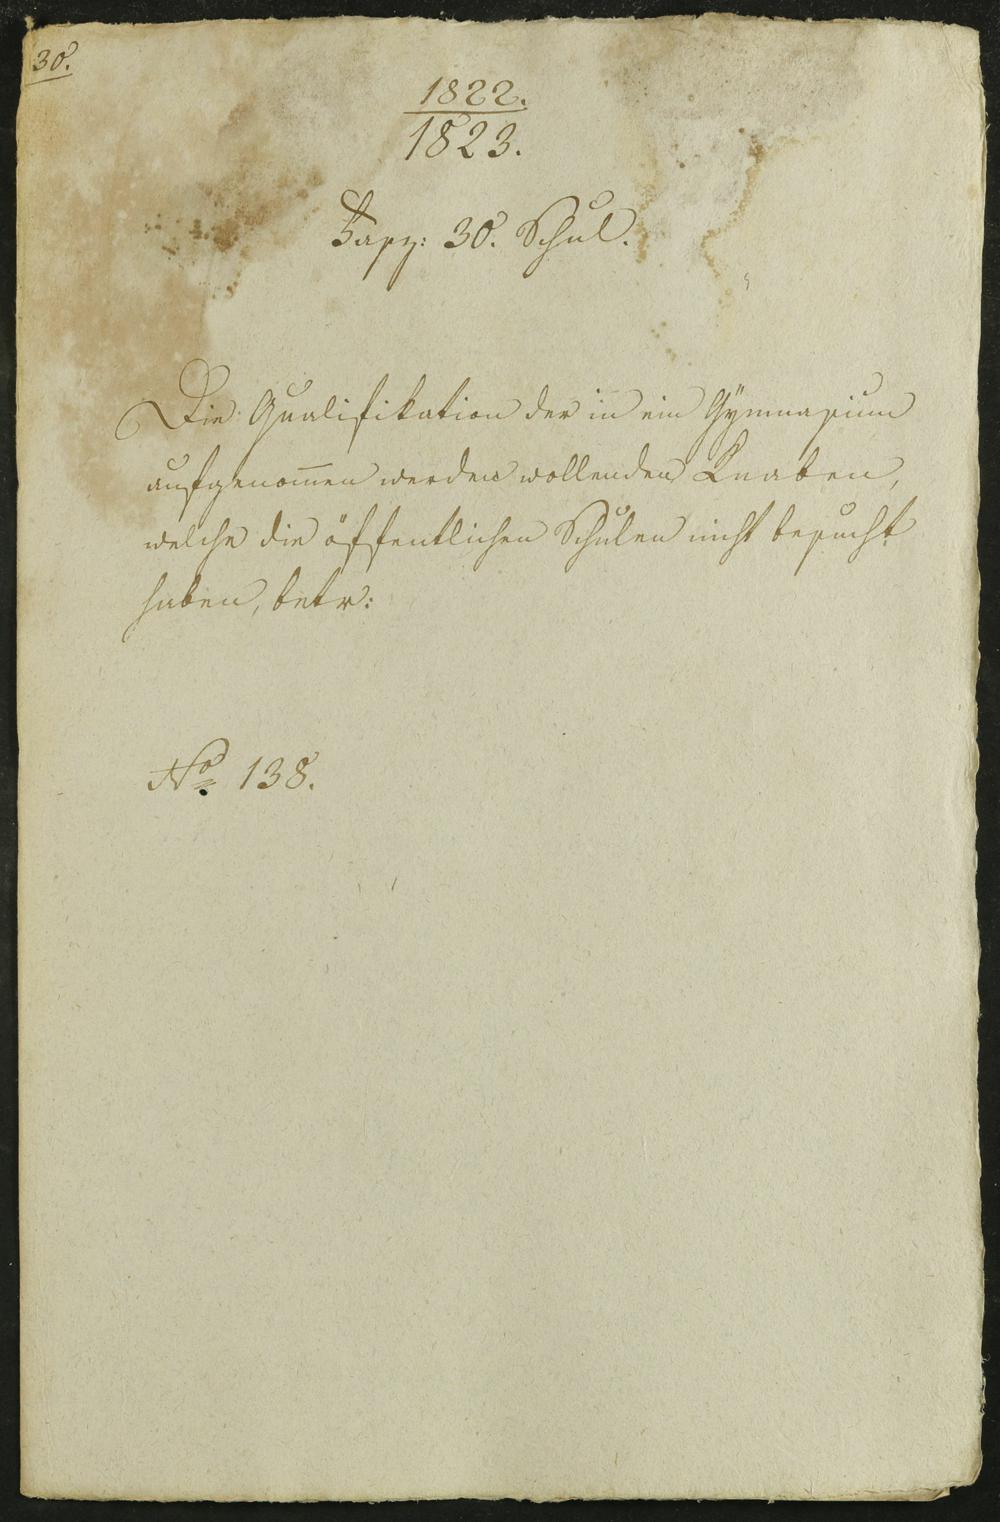 30.
1822.
1823.
Fasz: 30. Schul.
Die Qualifikation der in ein Gÿmnasium
aufgenom̅en werden wollenden Knaben,
welche die öffentlichen Schulen nicht besucht
haben, betr:
No 138.